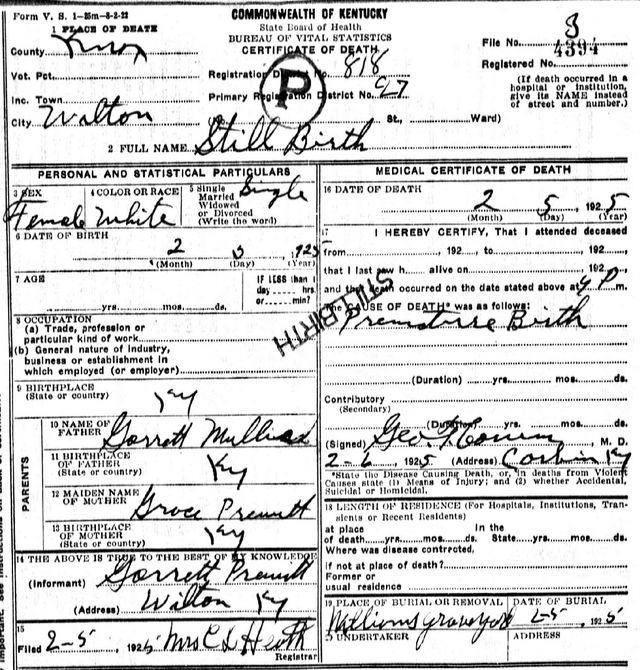 Form V. S. 1—25m—8-2-22
COMMONWEALTH OF KENTUCKY
State Board of Health
BUREAU OF VITAL STATISTICS
CERTIFICATE OF DEATH
1 PLACE OF DEATH
County Knox
File No. 3
4394
Registered No.
Vot. Pct.
Registration District No. 818
(If death occurred in a
hospital or institution,
give its NAME instead
of street and number.)
Inc. Town
Primary Registration District No. 927
P
City Wilton St., Ward)
2 FULL NAME Still Birth
PERSONAL AND STATISTICAL PARTICULARS
3 SEX
Female
4 COLOR OR RACE
White
5 Single
Married
Widowed
or Divorced
(Write the word)
Single
6 DATE OF BIRTH
2 1925
(Month) (Day) (Year)
7 AGE
yrs. mos. ds.
IF LESS than 1
day hrs.
or min?
8 OCCUPATION
(a) Trade, profession or
particular kind of work
(b) General nature of industry,
business or establishment in
which employed (or employer)
STILLBIRTH
9 BIRTHPLACE
(State or country)
Ky
PARENTS
10 NAME OF
FATHER
Garrett
11 BIRTHPLACE
OF FATHER
(State or country)
Ky
12 MAIDEN NAME
OF MOTHER
Grace Prewitt
13 BIRTHPLACE
OF MOTHER
(State or country)
Ky
14 THE ABOVE IS TRUE TO THE BEST OF MY KNOWLEDGE
(Informant) Garrett Prewitt
(Address) Wilton Ky
15
Filed 2-5 1925 Mrs C L Heath
Registrar
MEDICAL CERTIFICATE OF DEATH
16 DATE OF DEATH
2 5 1925
(Month) (Day) (Year)
17 I HEREBY CERTIFY, That I attended deceased
from 192 to 192
that I last saw h alive on 192
and that death occurred on the date stated above at 9 P m.
The CAUSE OF DEATH* was as follows:
Premature Birth
(Duration) yrs. mos. ds.
Contributory
(Secondary)
(Duration) yrs. mos. ds.
(Signed) Geo. M. D.
2-6 1925 (Address) Corbin Ky
*State the Disease Causing Death, or, in deaths from Violent
Causes state (1) Means of Injury; and (2) whether Accidental,
Suicidal or Homicidal.
18 LENGTH OF RESIDENCE (For Hospitals, Institutions, Tran-
sients or Recent Residents)
at place In the
of death yrs. mos. ds. State yrs. mos. ds.
Where was disease contracted,
if not at place of death?
Former or
usual residence
19 PLACE OF BURIAL OR REMOVAL
graveyard
DATE OF BURIAL
2-5 1925
UNDERTAKER
ADDRESS